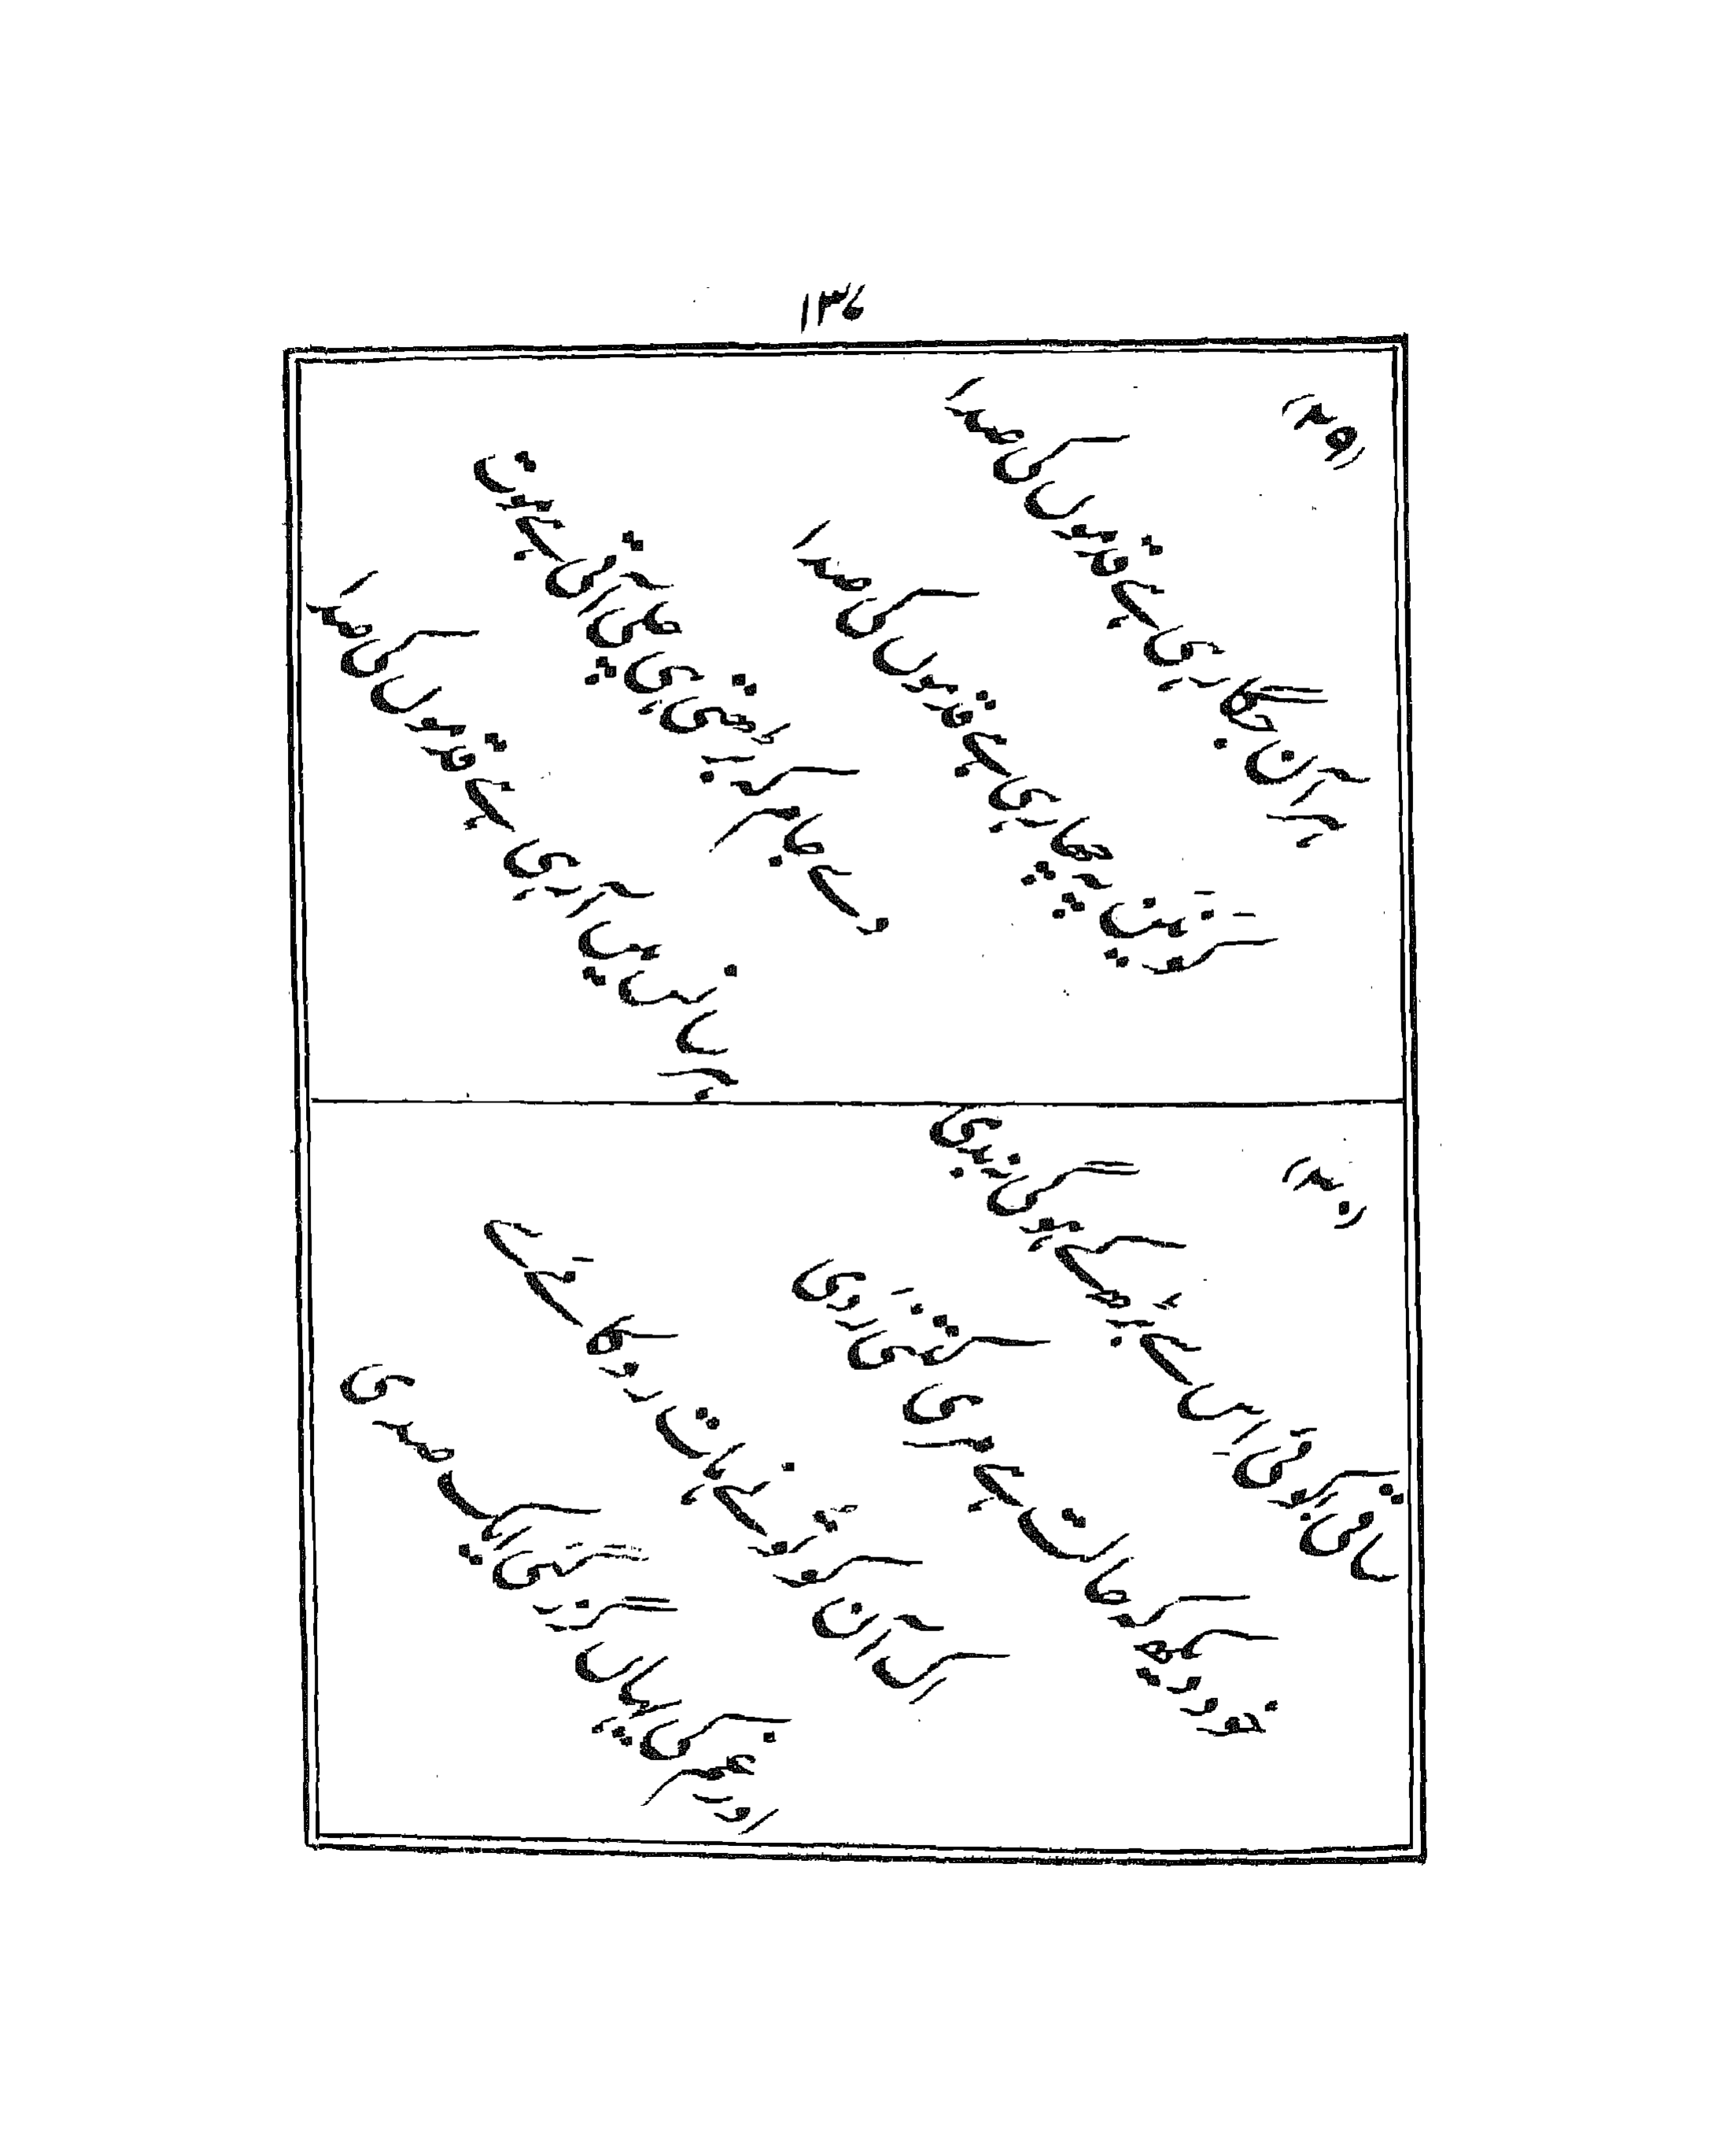 ۱۳۶
(۲۹)
ہر آن جگا رہی ہے قدموں کی صدا
کونین پہ چھا رہی ہے قدموں کی صدا
وہ سے جام کہ بڑھتی ہی چلی آتی ہے موت
ہر سانس میں آ رہی ہے قدموں کی صدا
(۳۰)
ساقی کوئی اس سے بڑھ کے ہوگی نہ بدی
خود دیکھ کہ حالت ہے مری کتنی ردی
اک آن کو تو نے ہات روکا ہے
اور عمر کی یہاں گزر گئی ایک صدی